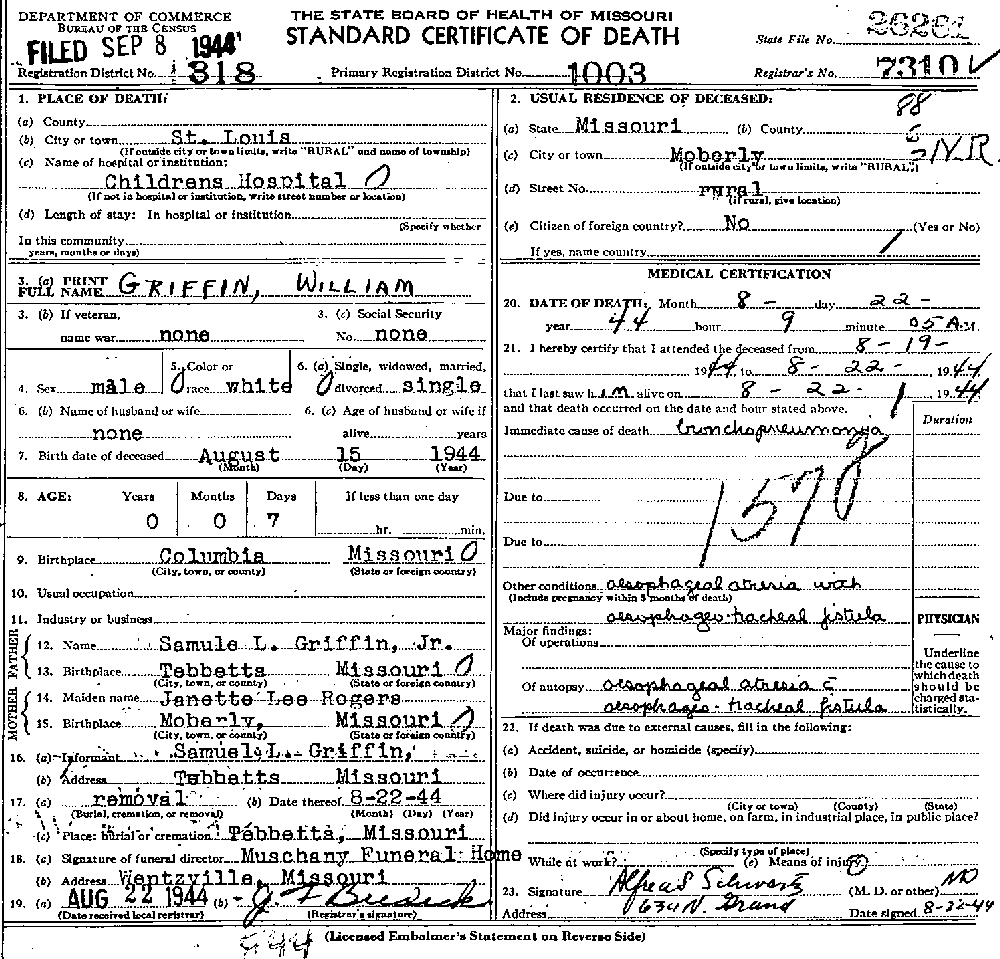 DEPARTMENT OF COMMERCE
BUREAU OF THE CENSUS
FILED SEP 8 1944
THE STATE BOARD OF HEALTH OF MISSOURI
STANDARD CERTIFICATE OF DEATH
State File No.
Registration District No. 318
Primary Registration District No. 1003
Registrar's No. 7310
1. PLACE OF DEATH:
(a) County
(b) City or town St. Louis
(If outside city or town limits, write "RURAL" and name of township)
(c) Name of hospital or institution:
Childrens Hospital
(If not in hospital or institution, write street number or location)
(d) Length of stay: In hospital or institution
(Specify whether
In this community
years, months or days)
2. USUAL RESIDENCE OF DECEASED: 88
(a) State Missouri (b) County
(c) City or town Moberly N.R.
(If outside city or town limits, write "RURAL")
(d) Street No. rural
(If rural, give location)
(e) Citizen of foreign country? No (Yes or No)
If yes, name country
3. (a) PRINT FULL NAME GRIFFIN, WILLIAM
3. (b) If veteran, name war none
3. (c) Social Security No. none
4. Sex male
5. Color or race white
6. (a) Single, widowed, married, divorced single
6. (b) Name of husband or wife
none
6. (c) Age of husband or wife if
alive years
7. Birth date of deceased August 15 1944
(Month) (Day) (Year)
8. AGE: Years Months Days If less than one day
0 0 7 hr. min.
9. Birthplace Columbia Missouri
(City, town, or county) (State or foreign country)
10. Usual occupation
11. Industry or business
FATHER
12. Name Samule L. Griffin, Jr.
13. Birthplace Tebbetts Missouri
(City, town, or county) (State or foreign country)
MOTHER
14. Maiden name Janette Lee Rogers
15. Birthplace Moberly, Missouri
(City, town, or county) (State or foreign country)
16. (a) Informant Samuel L. Griffin,
(b) Address Tebbetts Missouri
17. (a) removal (b) Date thereof 8-22-44
(Burial, cremation, or removal) (Month) (Day) (Year)
(c) Place: burial or cremation Tebbetts, Missouri
18. (a) Signature of funeral director Muschany Funeral Home
(b) Address Wentzville, Missouri
19. (a) AUG 22 1944 (b)
(Date received local registrar) (Registrar's signature)
MEDICAL CERTIFICATION
20. DATE OF DEATH: Month 8 - day 22 -
year 44 hour 9 minute 05 A.M.
21. I hereby certify that I attended the deceased from 8 - 19 -
1944 to 8 - 22 - 1944
that I last saw him alive on 8 - 22 - 1944
and that death occurred on the date and hour stated above.
Duration
Immediate cause of death bronchopneumonia
Due to
Due to
Other conditions oesophageal atresia with
(Include pregnancy within 3 months of death)
oesophageo-tracheal fistula
Major findings:
Of operations
Of autopsy oesophageal atresia c
oesophageo-tracheal fistula
PHYSICIAN
Underline the cause to which death should be charged statistically.
22. If death was due to external causes, fill in the following:
(a) Accident, suicide, or homicide (specify)
(b) Date of occurrence
(c) Where did injury occur?
(City or town) (County) (State)
(d) Did injury occur in or about home, on farm, in industrial place, in public place?
(Specify type of place)
While at work? (e) Means of injury
23. Signature Alfred Schwartz (M. D. or other) MD
Address 634 N. Grand Date signed 8-22-44
(Licensed Embalmer's Statement on Reverse Side)